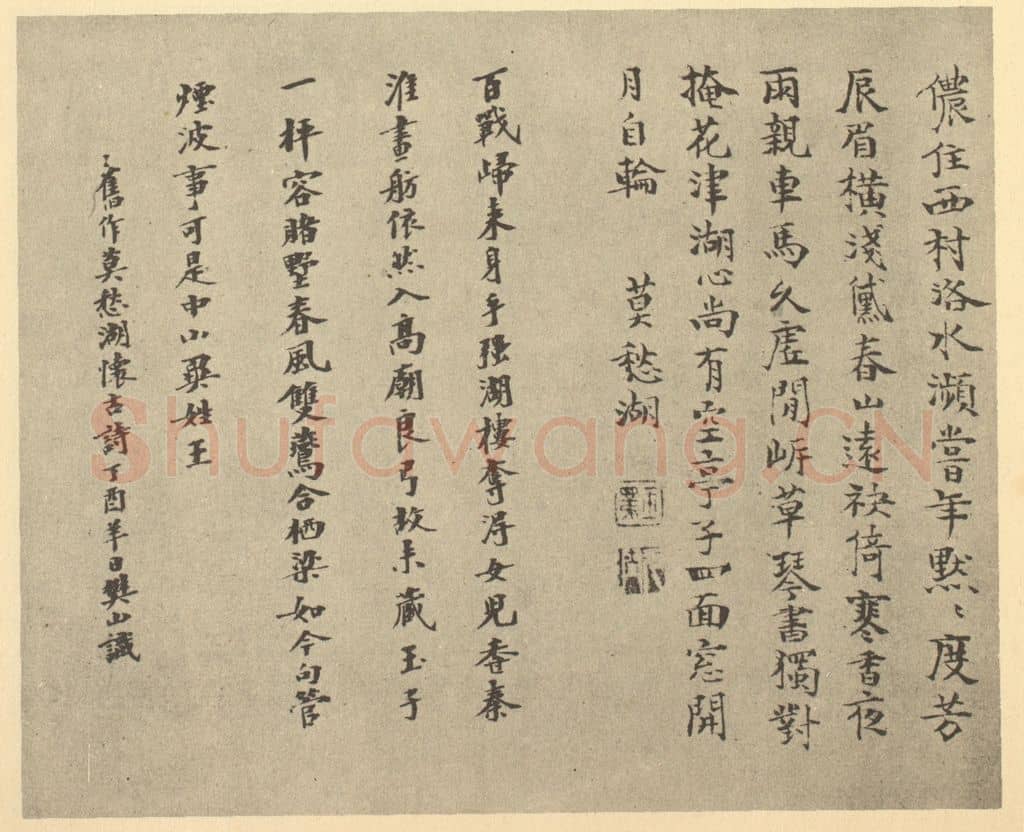 儂住西村洛水瀕當年默〻度芳
辰眉橫淺黛春山遠袂倚寒香夜
雨親車馬久虛閒岸草琴書獨對
掩花津湖心尚有空亭子四面窓開
月自輪 莫愁湖
百戰歸來身手强湖樓奪得女兒香秦
淮畫舫依然入高廟良弓故未藏玉子
一枰容賭墅春風雙燕合栖梁如今勾管
煙波事可是中山異姓王
舊作莫愁湖懷古詩丁酉羊日樊山識
Shufawang.CN